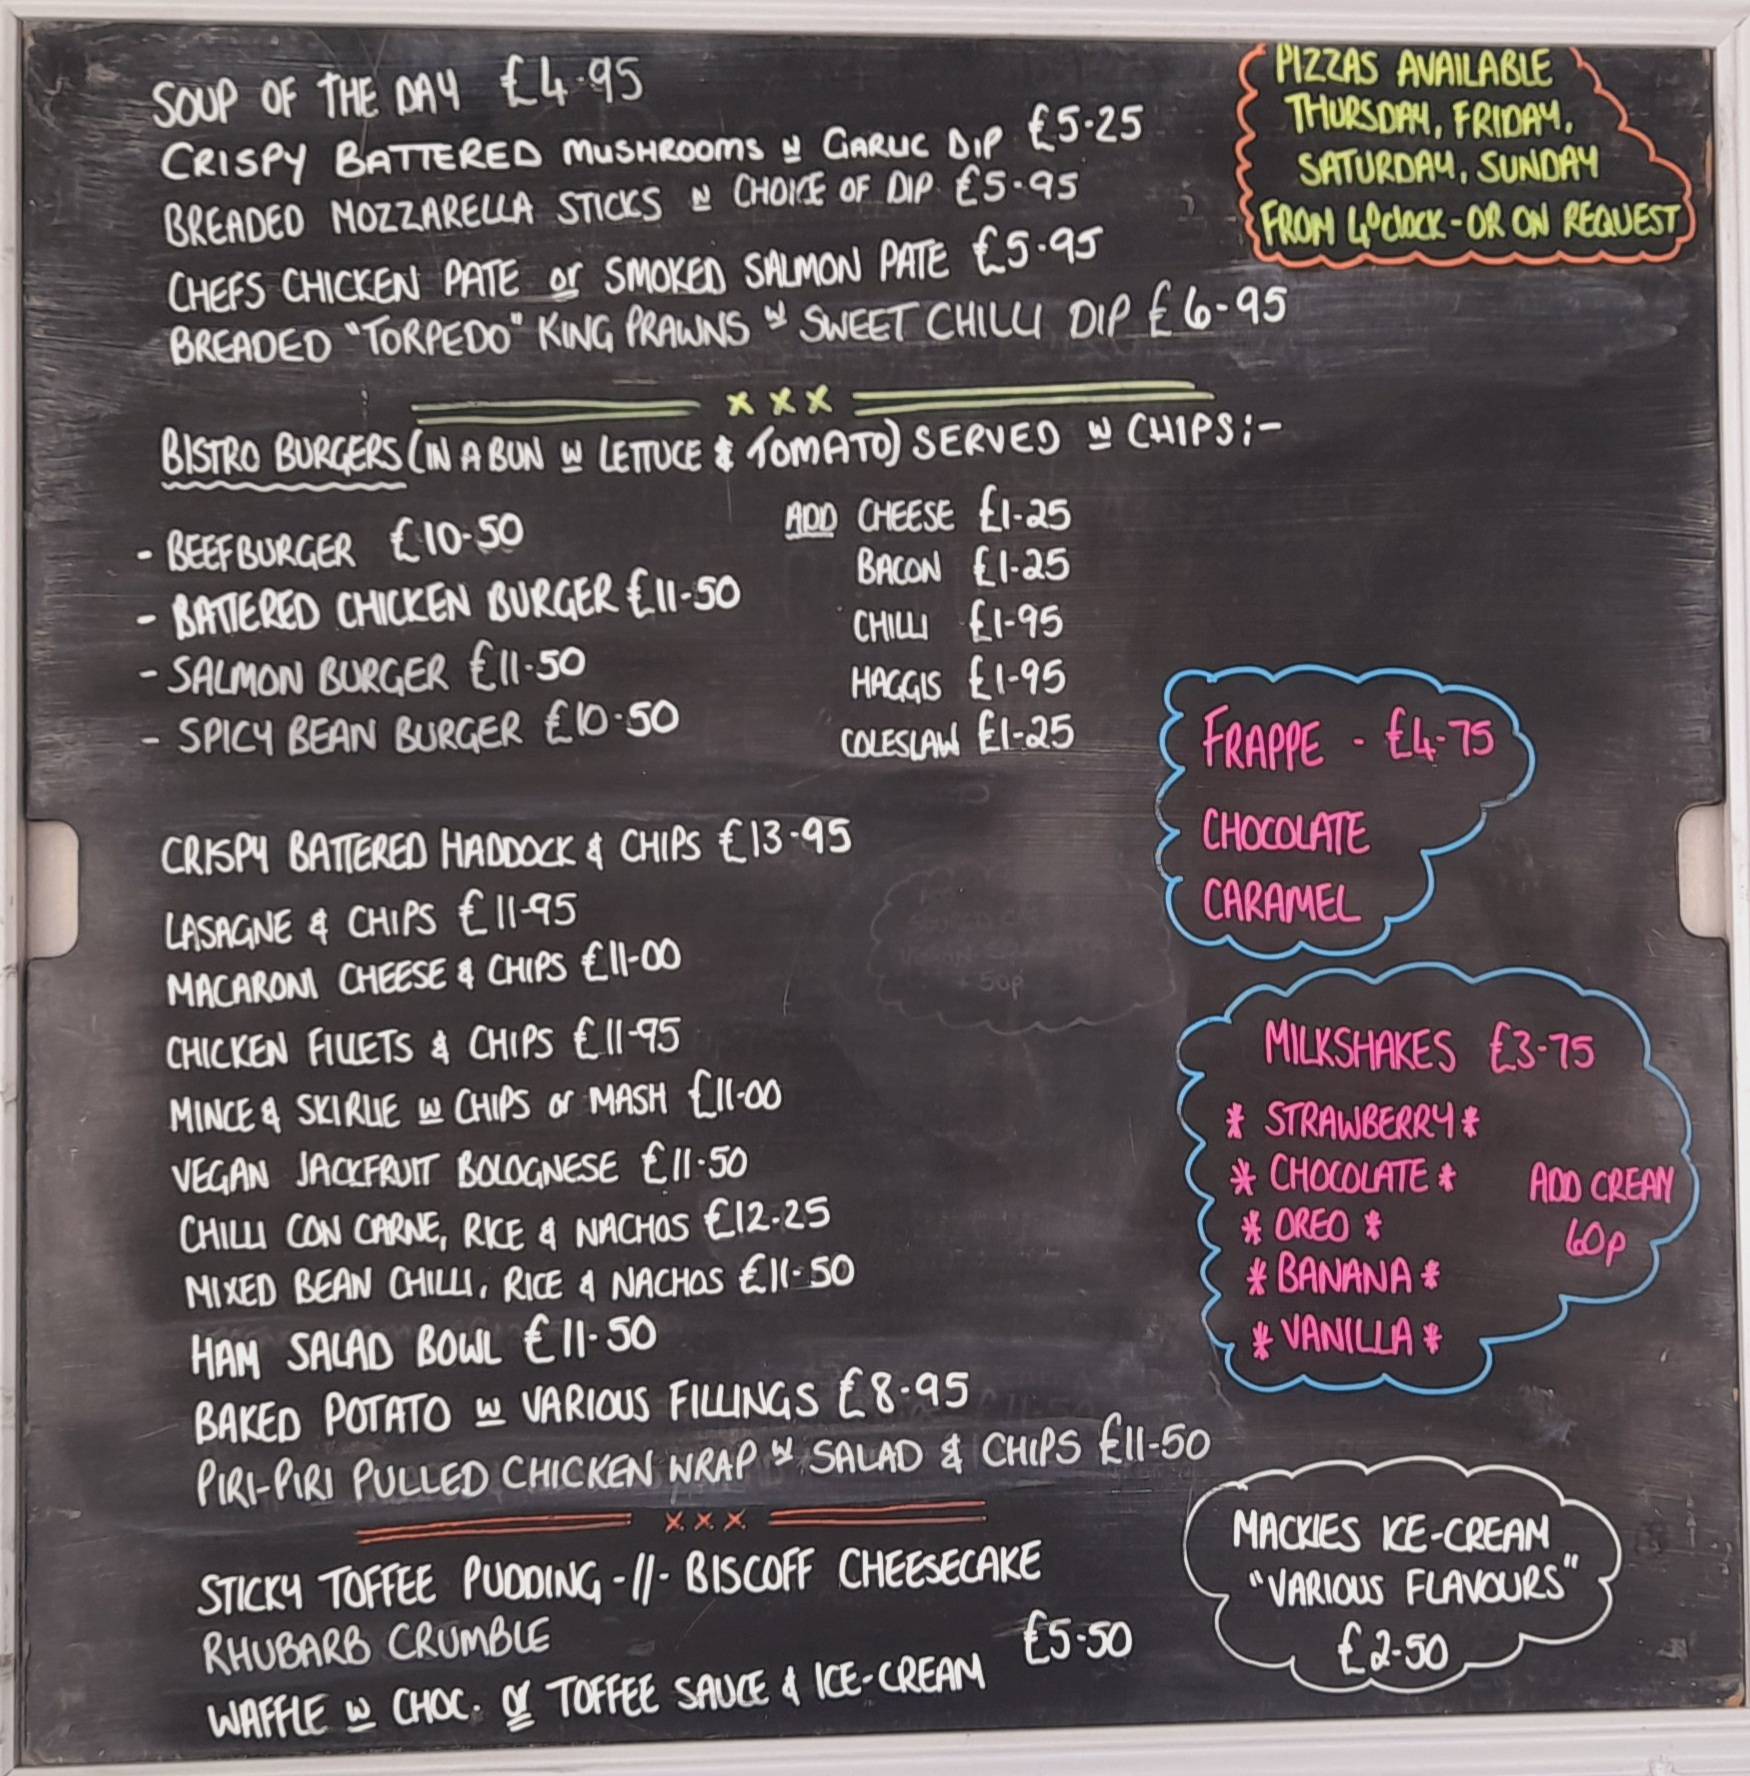 SOUP OF THE DAY £4.95
CRISPY BATTERED MUSHROOMS W GARLIC DIP £5.25
BREADED MOZZARELLA STICKS W CHOICE OF DIP £5.95
CHEFS CHICKEN PATE or SMOKED SALMON PATE £5.95
BREADED "TORPEDO" KING PRAWNS W SWEET CHILLI DIP £6-95
PIZZAS AVAILABLE
THURSDAY, FRIDAY,
SATURDAY, SUNDAY
FROM 4O'Clock - OR ON REQUEST
x x x
BISTRO BURGERS (IN A BUN W LETTUCE & TOMATO) SERVED W CHIPS:-
- BEEFBURGER £10-50
- BATTERED CHICKEN BURGER £11-50
- SALMON BURGER £11-50
- SPICY BEAN BURGER £10-50
ADD CHEESE £1-25
BACON £1-25
CHILLI £1-95
HAGGIS £1-95
COLESLAW £1-25
CRISPY BATTERED HADDOCK & CHIPS £13-95
LASAGNE & CHIPS £11-95
MACARONI CHEESE & CHIPS £11-00
CHICKEN FILLETS & CHIPS £11-95
MINCE & SKIRLIE W CHIPS or MASH £11-00
VEGAN JACKFRUIT BOLOGNESE £11-50
CHILLI CON CARNE, RICE & NACHOS £12-25
MIXED BEAN CHILLI, RICE & NACHOS £11-50
HAM SALAD BOWL £11-50
BAKED POTATO W VARIOUS FILLINGS £8-95
PIRI-PIRI PULLED CHICKEN WRAP W SALAD & CHIPS £11-50
FRAPPE - £4-75
CHOCOLATE
CARAMEL
MILKSHAKES £3-75
* STRAWBERRY *
* CHOCOLATE *
* OREO *
* BANANA *
* VANILLA *
ADD CREAM
60p
x x x
STICKY TOFFEE PUDDING -//- BISCOFF CHEESECAKE
RHUBARB CRUMBLE
£5-50
WAFFLE W CHOC. or TOFFEE SAUCE & ICE-CREAM
MACKIES ICE-CREAM
"VARIOUS FLAVOURS"
£2-50